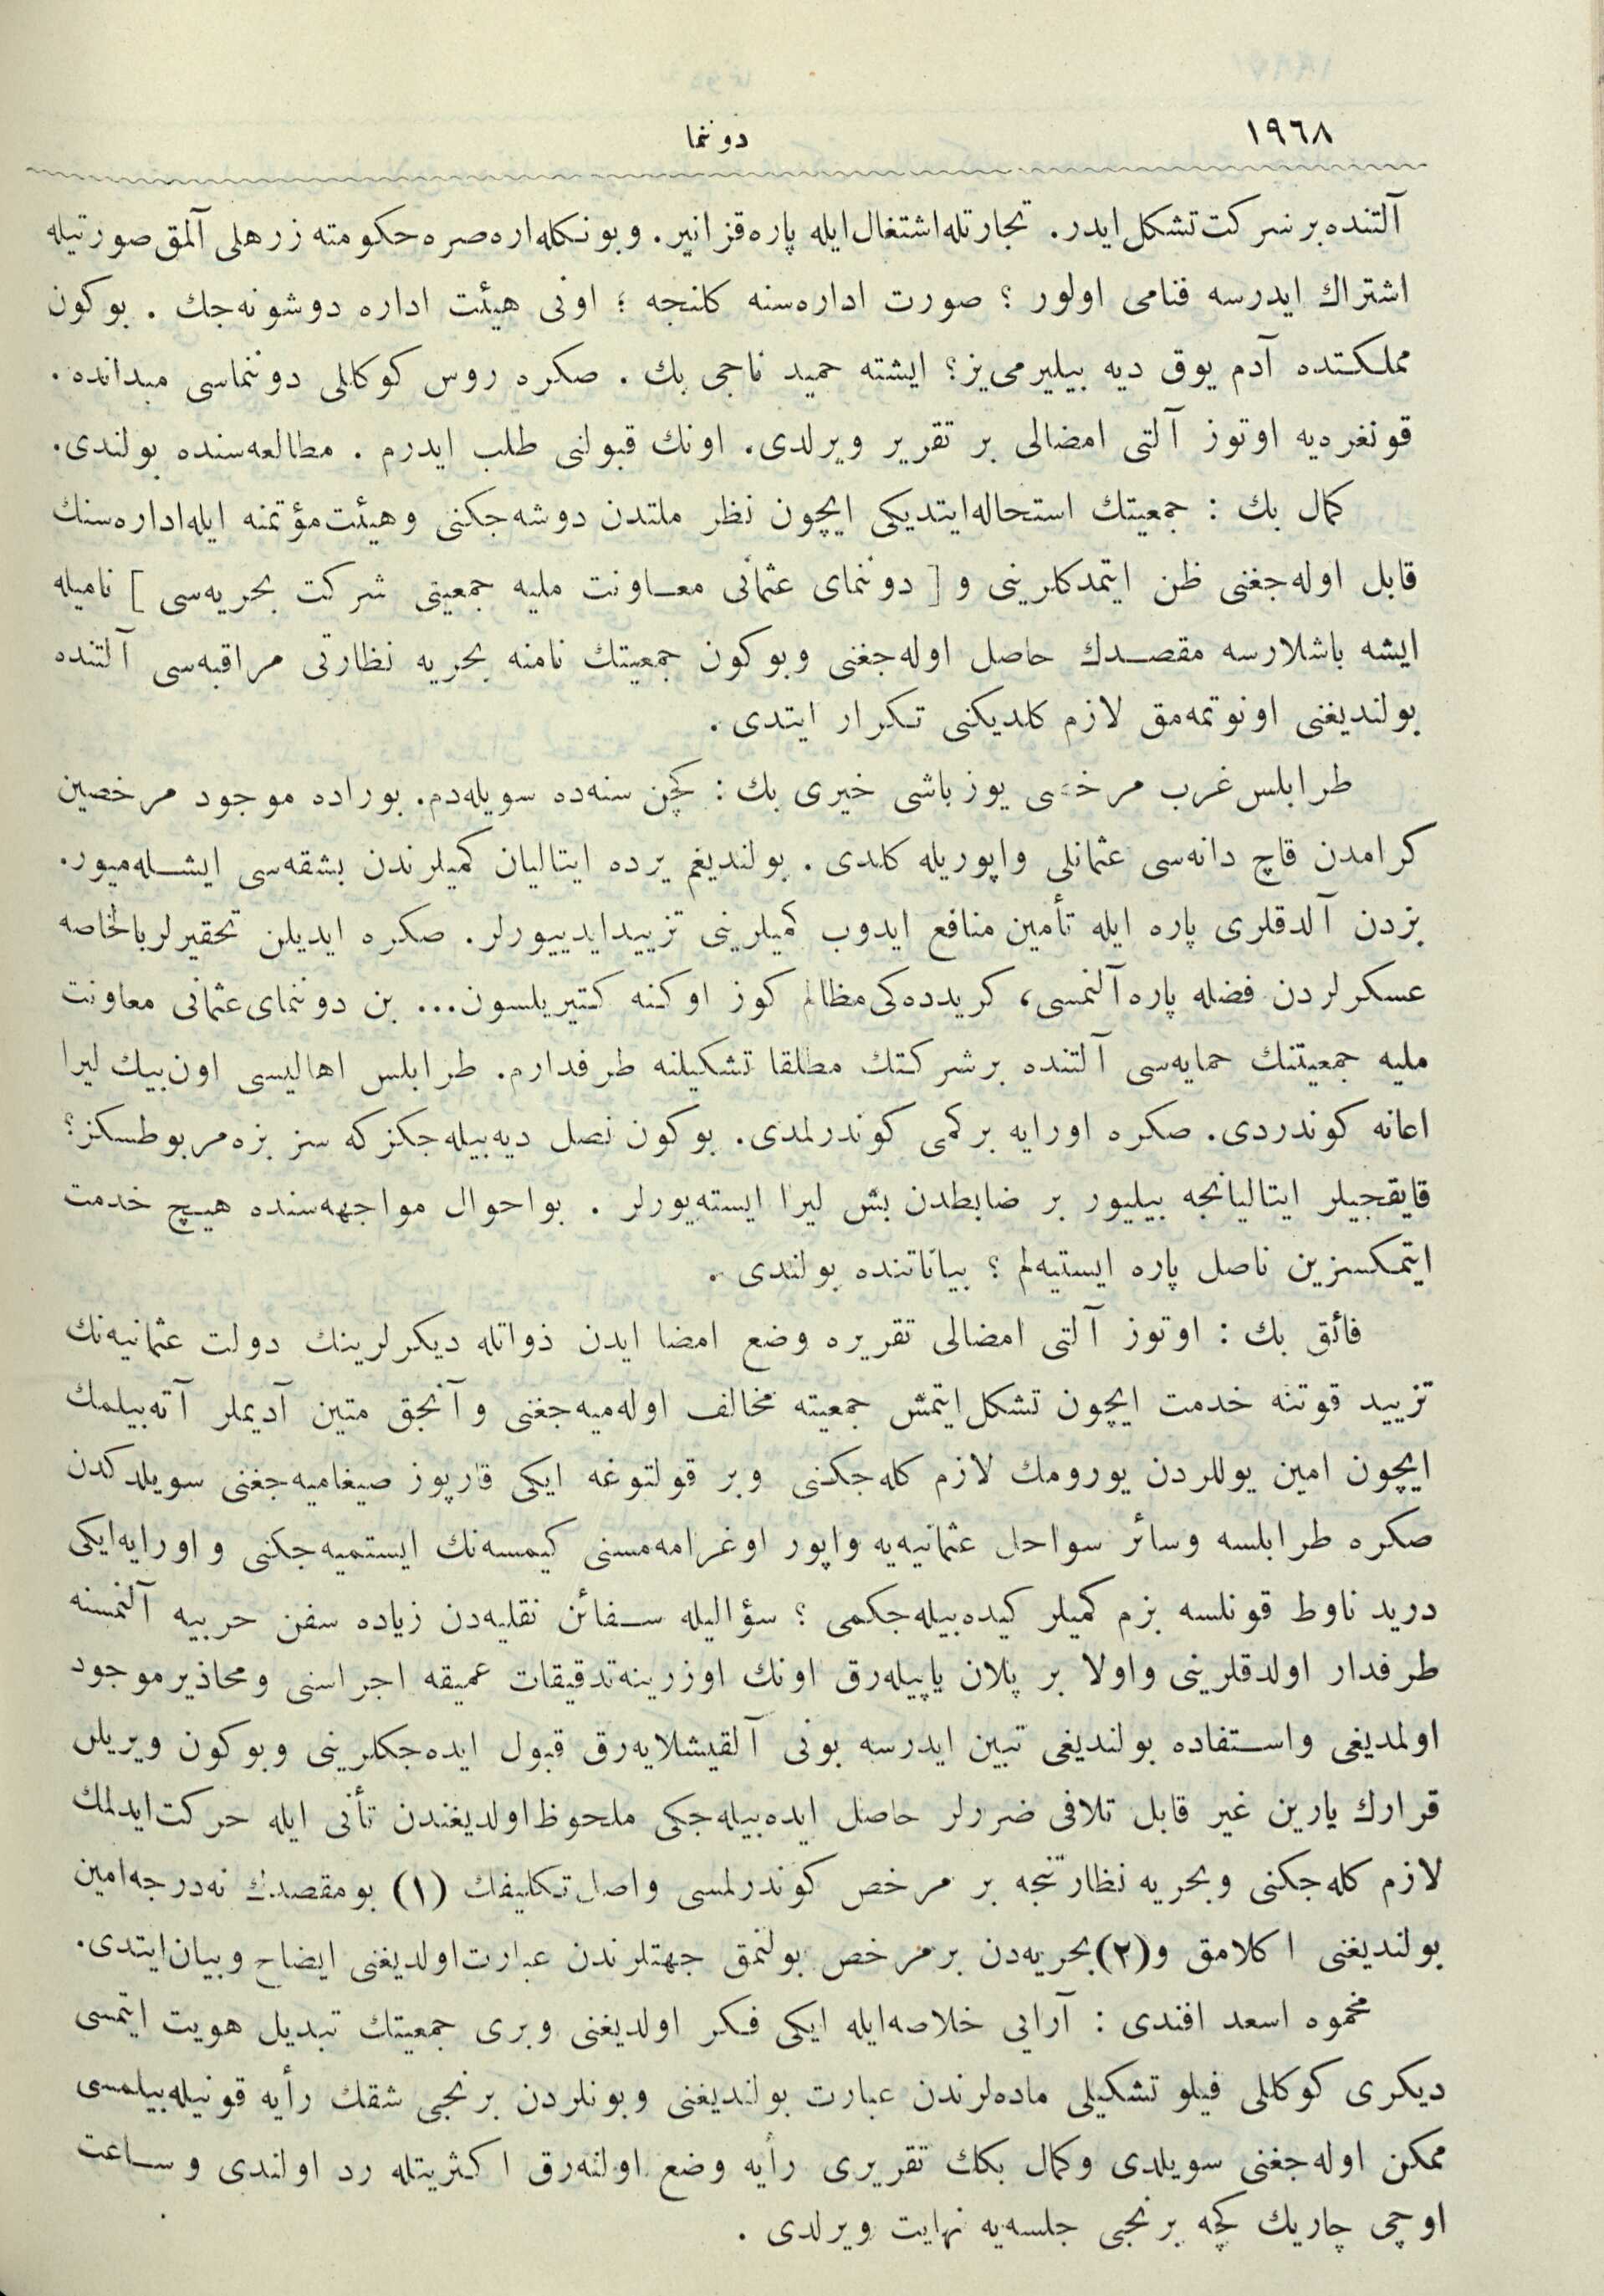 ١٩٦٨
دوننما
آلتنده بر شركت تشكل ايدر. تجارتله اشتغال ايله پاره قزانير. و بونكله اره صره حكومته زرهلى آلمق صورتيله
اشتراك ايدرسه فنامى اولور ؟ صورت اداره سنه كلنجه ؛ اونى هيئت اداره دوشونه جك . بوكون
مملكتده آدم يوق ديه بيليرمى يز؟ ايشته حميد ناجى بك . صكره روس كوكللى دوننماسى ميدانده.
قونغره يه اوتوز آلتى امضالى بر تقرير ويرلدى. اونك قبولنى طلب ايدرم . مطالعه سنده بولندى.
كمال بك : جمعيتك استحاله ايتديكى ايچون نظر ملتدن دوشه جكنى و هيئت مؤتمنه ايله اداره سنك
قابل اوله جغنى ظن ايتمدكلرينى و [ دوننماى عثمانى معاونت مليه جمعيتى شركت بحريه سى ] ناميله
ايشه باشلارسه مقصدك حاصل اوله جغنى و بوكون جمعيتك نامنه بحريه نظارتى مراقبه سى آلتنده
بولنديغنى اونوتمه مق لازم كلديكنى تكرار ايتدى .
طرابلس غرب مرخصى يوزباشى خيرى بك : كچن سنه ده سويله دم. بوراده موجود مرخصين
كرامدن قاچ دانه سى عثمانلى واپوريله كلدى . بولنديغم يرده ايتاليان كميلرندن بشقه سى ايشله ميور.
بزدن آلدقلرى پاره ايله تأمين منافع ايدوب كميلرينى تزييد ايدييورلر. صكره ايديلن تحقيرلر بالخاصه
عسكرلردن فضله پاره آلنمسى، كريدده كى مظالم كوز اوكنه كتيريلسون... بن دوننماى عثمانى معاونت
مليه جمعيتنك حمايه سى آلتنده بر شركتك مطلقا تشكيلنه طرفدارم. طرابلس اهاليسى اون بيك ليرا
اعانه كوندردى. صكره اورايه بر كمى كوندرلمدى. بوكون نصل ديه بيله جكز كه سز بزه مربوطسكز؟
قايقجيلر ايتاليانجه بيليور بر ضابطدن بش ليرا ايسته يورلر . بو احوال مواجهه سنده هيچ خدمت
ايتمكسزين ناصل پاره ايستيه لم ؟ بياناتنده بولندى .
فائق بك : اوتوز آلتى امضالى تقريره وضع امضا ايدن ذواتله ديكرلرينك دولت عثمانيه نك
تزييد قوتنه خدمت ايچون تشكل ايتمش جمعيته مخالف اوله ميه جغنى و آنجق متين آديملر آته بيلمك
ايچون امين يوللردن يورومك لازم كله جكنى و بر قولتوغه ايكى قارپوز صيغاميه جغنى سويلدكدن
صكره طرابلسه و سائر سواحل عثمانيه يه واپور اوغرامه مسنى كيمسه نك ايستميه جكنى و اورايه ايكى
دريد ناوط قونلسه بزم كميلر كيده بيله جكمى ؟ سؤاليله سفائن نقليه دن زياده سفن حربيه آلنمسنه
طرفدار اولدقلرينى و اولا بر پلان ياپيله رق اونك اوزرينه تدقيقات عميقه اجراسنى و محاذير موجود
اولمديغى و استفاده بولنديغى تبين ايدرسه بونى آلقيشلايه رق قبول ايده جكلرينى و بوكون ويريلن
قرارك يارين غير قابل تلافى ضررلر حاصل ايده بيله جكى ملحوظ اولديغندن تأنى ايله حركت ايدلمك
لازم كله جكنى و بحريه نظارتنجه بر مرخص كوندرلمسى و اصل تكليفك (١) بو مقصدك نه درجه امين
بولنديغنى اكلامق و (٢) بحريه دن بر مرخص بولنمق جهتلرندن عبارت اولديغنى ايضاح و بيان ايتدى.
محموه اسعد افندى : آرايى خلاصه ايله ايكى فكر اولديغنى و برى جمعيتك تبديل هويت ايتمسى
ديكرى كوكللى فيلو تشكيلى ماده لرندن عبارت بولنديغنى و بونلردن برنجى شقك رأيه قونيله بيلمسى
ممكن اوله جغنى سويلدى و كمال بكك تقريرى رأيه وضع اولنه رق اكثريتله رد اولندى و ساعت
اوچى چاريك كچه برنجى جلسه يه نهايت ويرلدى .